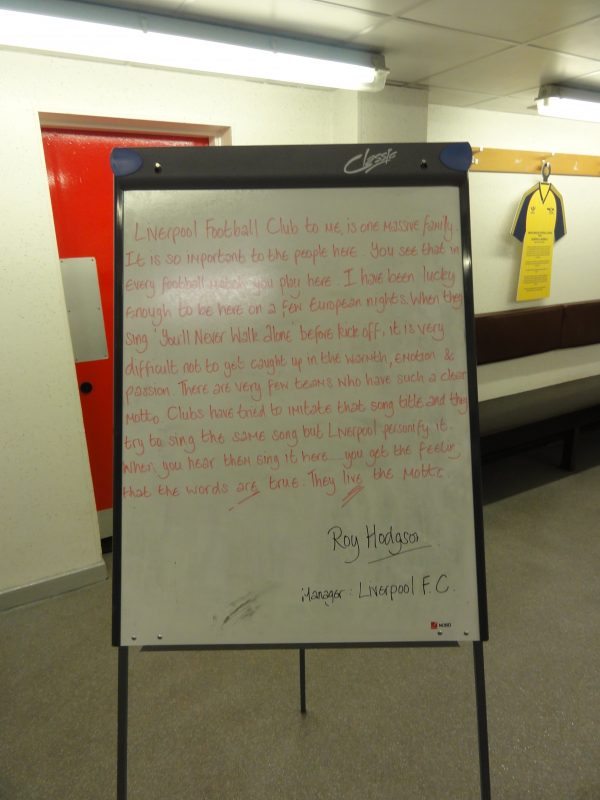 Classic
Liverpool Football Club to me, is one massive family.
It is so important to the people here. You see that in
every football match you play here. I have been lucky
enough to be here on a few European nights. When they
sing 'You'll Never Walk Alone' before kick off, it is very
difficult not to get caught up in the warmth, emotion &
passion. There are very few teams who have such a clear
motto. Clubs have tried to imitate that song title and they
try to sing the same song but Liverpool personify it.
When you hear them sing it here... you get the feeling
that the words are true. They live the motto.
Roy Hodgson
Manager: Liverpool F.C.
NOBO